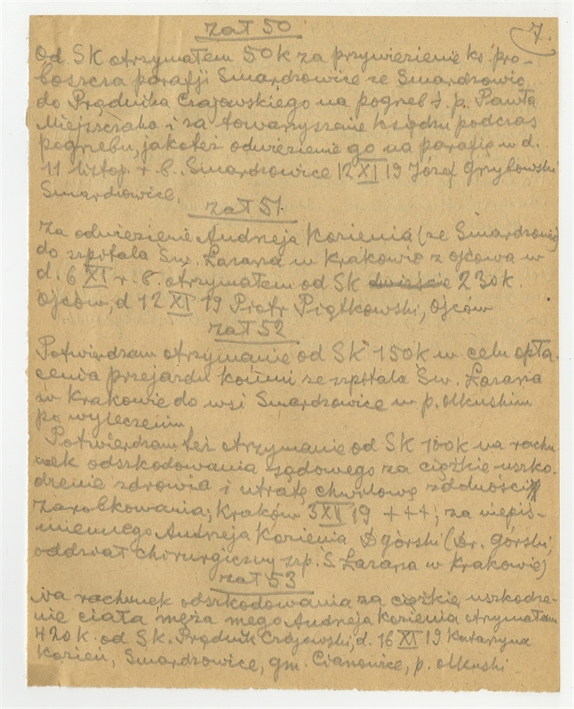 7.
zał 50
Od SK otrzymałem 50 k za przywiezienie ks. pro-
boszcza parafji Smardzowice ze Smardzowic
do Prądnika Czajowskiego na pogrzeb ś. p. Pawła
Miejszczaka i za towarzyszenie księdzu podczas
pogrzebu, jakoteż odwiezienie go na parafię w d.
11 listop. r. b. Smardzowice 12 XI 19 Józef Grzybowski
Smardzowice.
zał 51.
Za odwiezienie Andrzeja Kozienia (ze Smardzowic)
do szpitala Św. Łazarza w Krakowie z Ojcowa w
d. 6 XI r. b. otrzymałem od SK 230 k.
Ojców, d 12 XI 19 Piotr Piątkowski, Ojców
zał 52
Potwierdzam otrzymanie od SK 150 k w celu opła-
cenia przejazdu końmi ze szpitala Św. Łazarza
w Krakowie do wsi Smardzowice w p. olkuskim
po wyleczeniu.
Potwierdzam też otrzymanie od SK 100 k na rachu-
nek odszkodowania sądowego za ciężkie uszko-
dzenie zdrowia i utratę chwilową zdolności
zarobkowania; Kraków 3 XII 19 +++, za niepiś-
miennego Andrzeja Kozienia D górski (Dr. Górski,
oddział chirurgiczny szp. Ś. Łazarza w Krakowie)
zał 53
Na rachunek odszkodowania za ciężkie uszkodze-
nie ciała męża mego Andrzeja Kozienia otrzymałam
420 k. od S.K. Prądnik Czajowski, d. 16 XI 19. Katarzyna
Kozień, Smardzowice, gm. Cianowice, p. olkuski